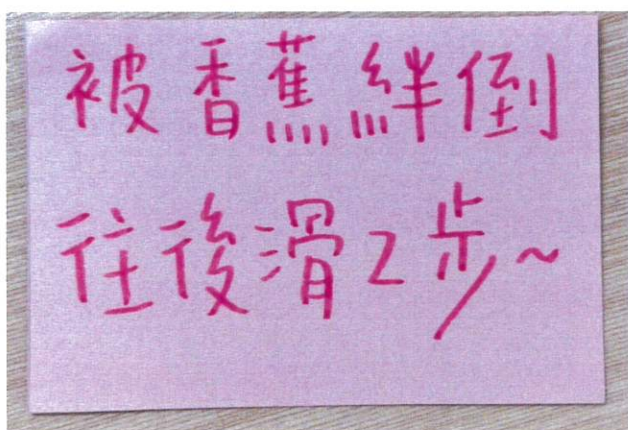 被香蕉絆倒
往後滑2步~